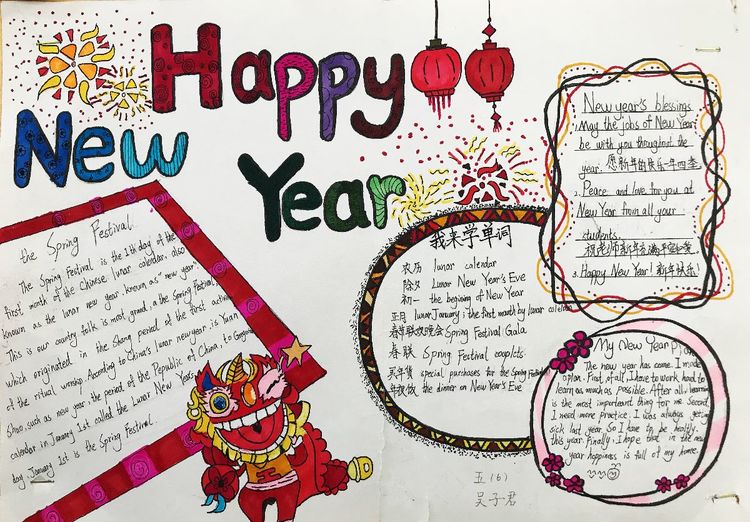 Happy
New
Year
the Spring Festival
The Spring Festival is the 1th day of the
first month of the Chinese lunar calendar, also
known as the lunar new year, known as "new year".
This is our country folk is most grand, a the Spring Festival,
which originated in the Shang period of the first action
of the ritual worship, According to China's lunar newyear is Yuan
Shuo, such as new year, the period of the Republic of China, to Gregorian
calendar in January 1st called the Lunar New Years
day January 1st is the Spring Festival.
New year's blessings
May the jobs of New Year
be with you throughout the
year. 愿新年的快乐一年四季
Peace and love for you at
New Year from all your
students.
祝老师新年充满平安和爱.
Happy New Year! 新年快乐!
我来学单词
农历 lunar calendar
除夕 Lunar New Year's Eve
初一 the begining of New Year
正月 lunar January; the first month by lunar calendar
春节联欢晚会 Spring Festival Gala
春联 Spring Festival couplets
买年货 special purchases for the Spring Festival
年夜饭 the dinner on New Year's Eve
My New Year Plan
The new year has come. I made
a plan. First of all, I have to work hard to
learn as much as possible. After all, learn
is the most importeant thing for me Second,
I need more practice. I was always geting
sick last year. So I have to be healthy.
this year. Finally, I hope that in the new
year happiness is full of my home.
五(6)
吴子君